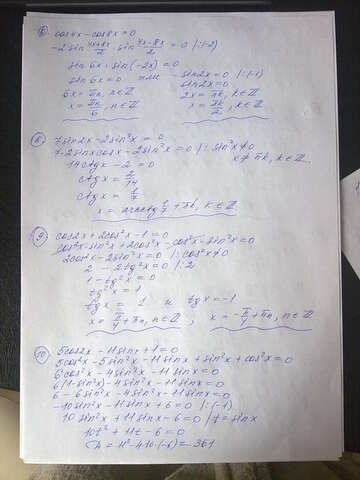 ⑥ cos4x - cos8x = 0
-2sin (4x+8x)/2 · sin (4x-8x)/2 = 0 |:(-2)
sin6x · sin(-2x) = 0
sin6x = 0 или -sin2x = 0 |:(-1)
6x = πn, n∈Z sin2x = 0
x = πn/6, n∈Z 2x = πk, k∈Z
x = πk/2, k∈Z
⑧ 7sin2x - 2sin²x = 0
7·2sinxcosx - 2sin²x = 0 |: sin²x ≠ 0
14ctgx - 2 = 0 x ≠ πk, k∈Z
ctgx = 2/14
ctgx = 1/7
x = arcctg 1/7 + πk, k∈Z
⑨ cos2x + 2cos²x - 1 = 0
cos²x - sin²x + 2cos²x - cos²x - sin²x = 0
2cos²x - 2sin²x = 0 |: cos²x ≠ 0
2 - 2tg²x = 0 |:2
1 - tg²x = 0
tg²x = 1
tgx = 1 и tgx = -1
x = π/4 + πn, n∈Z , x = -π/4 + πn, n∈Z
⑩ 5cos2x - 11sinx + 1 = 0
5cos²x - 5sin²x - 11sinx + sin²x + cos²x = 0
6cos²x - 4sin²x - 11sinx = 0
6(1-sin²x) - 4sin²x - 11sinx = 0
6 - 6sin²x - 4sin²x - 11sinx = 0
-10sin²x - 11sinx + 6 = 0 |:(-1)
10sin²x + 11sinx - 6 = 0 | t = sinx
10t² + 11t - 6 = 0
D = 11² - 4·10·(-6) = 361